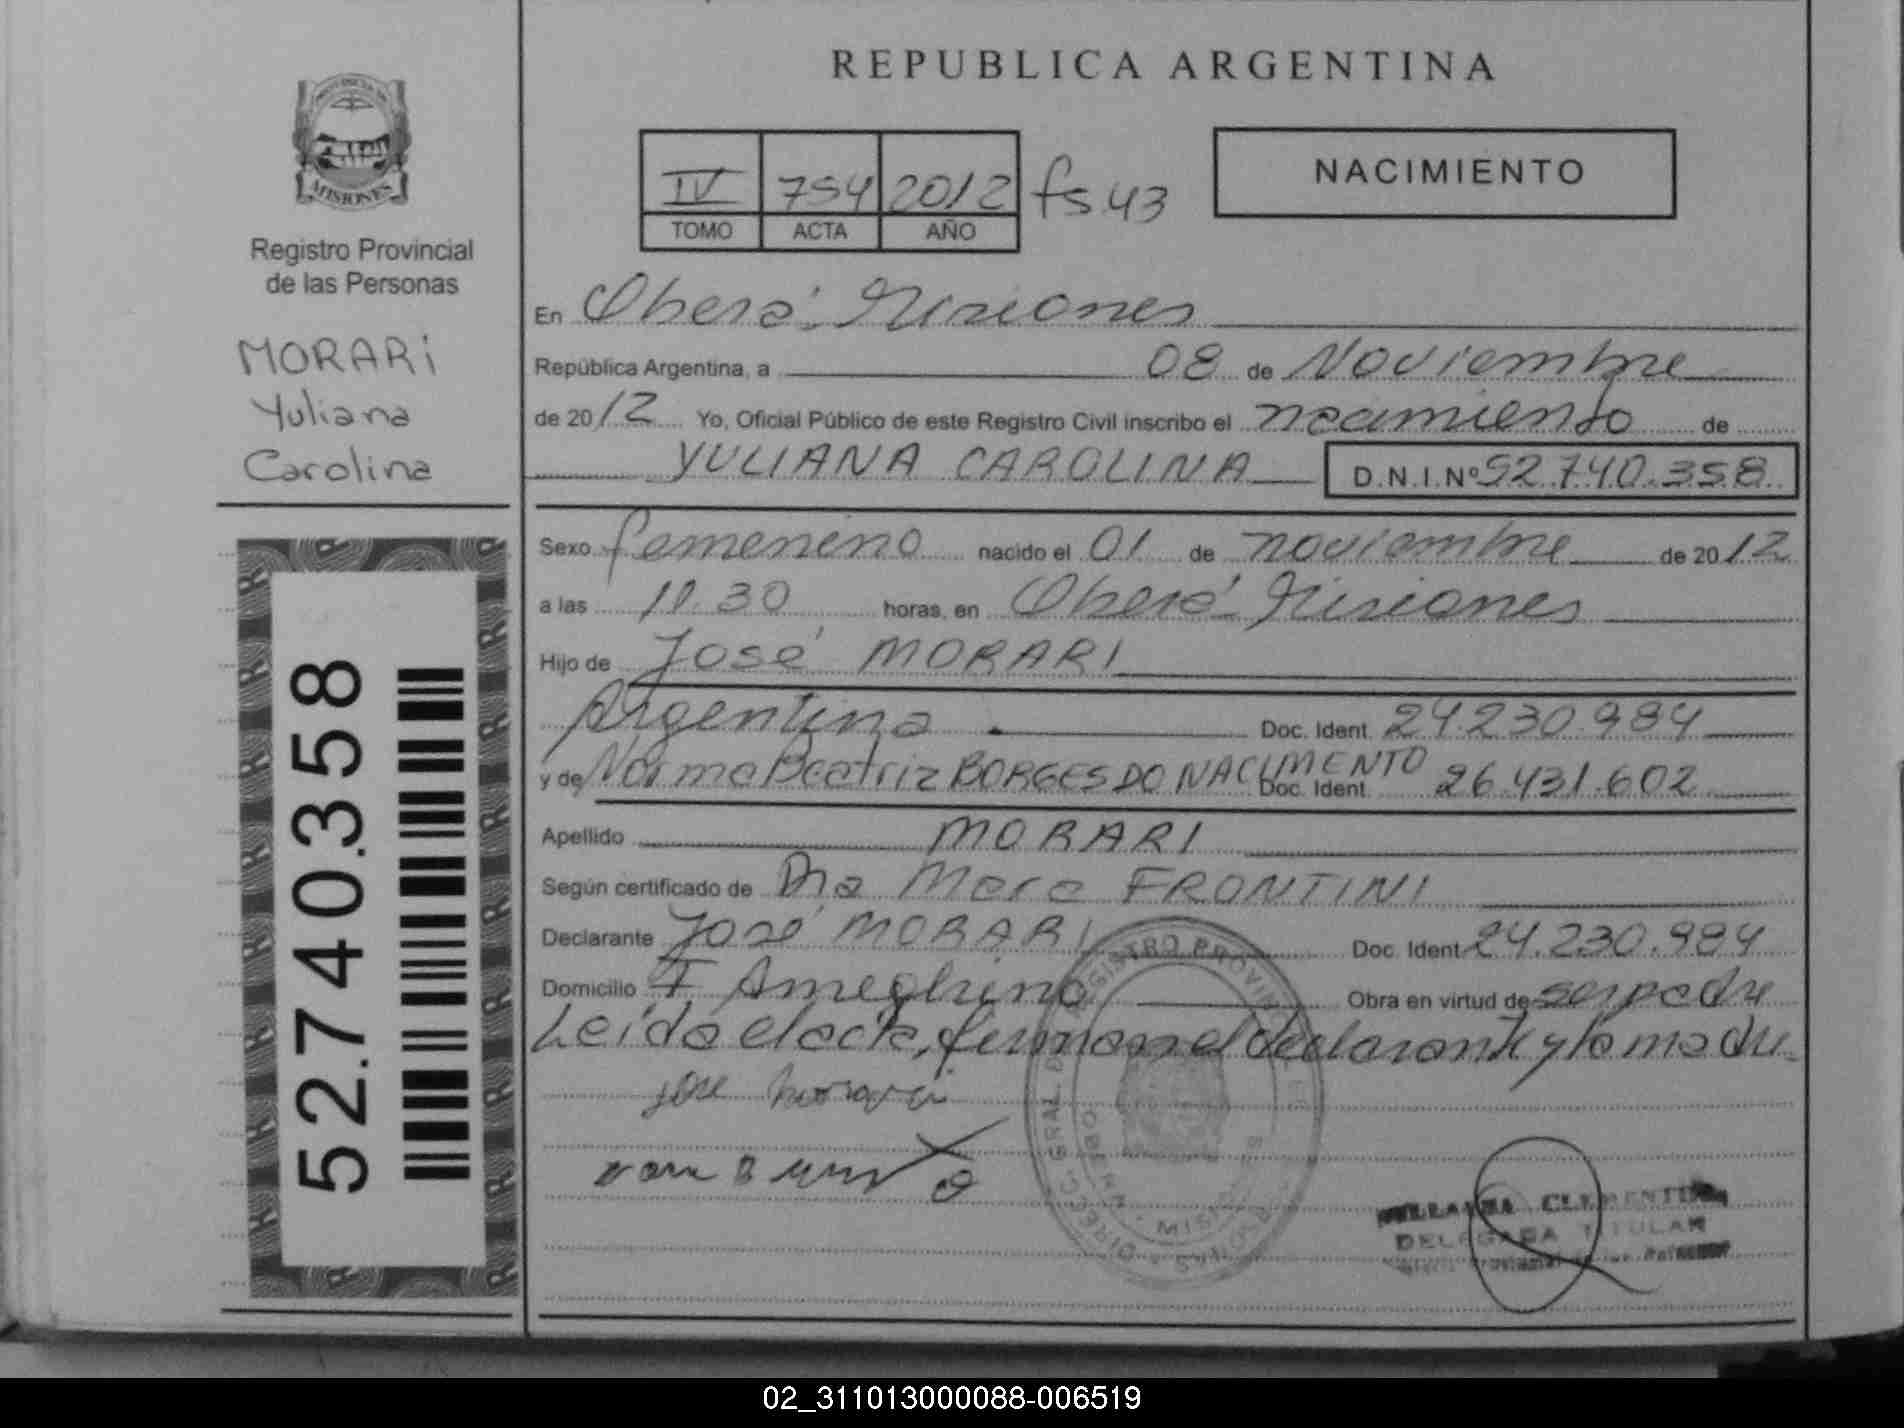 PROVINCIA DE
MISIONES
Registro Provincial
de las Personas
MORARi
Yuliana
Carolina
52.740.358
REPUBLICA ARGENTINA
IV 754 2012 fs 43
TOMO ACTA AÑO
NACIMIENTO
En Oberá Misiones
República Argentina, a 08 de Noviembre
de 2012 Yo, Oficial Público de este Registro Civil inscribo el nacimiento de
YULIANA CAROLINA D.N.I.Nº 52.740.358
Sexo femenino nacido el 01 de noviembre de 2012
a las 11.30 horas, en Oberá Misiones
Hijo de José MORARI
Argentina. Doc. Ident. 24.230.984
y de Norma Beatriz BORGES DO NACIMENTO Doc. Ident. 26.431.602
Apellido MORARI
Según certificado de Dra Mara FRONTINI
Declarante José MORARI Doc. Ident. 24.230.984
Domicilio F Ameghino Obra en virtud de ser padre
Leida el acta, firman el declarante y la madre
jose morari
CLEMENTINA
DELEGADA TITULAR
02_311013000088-006519